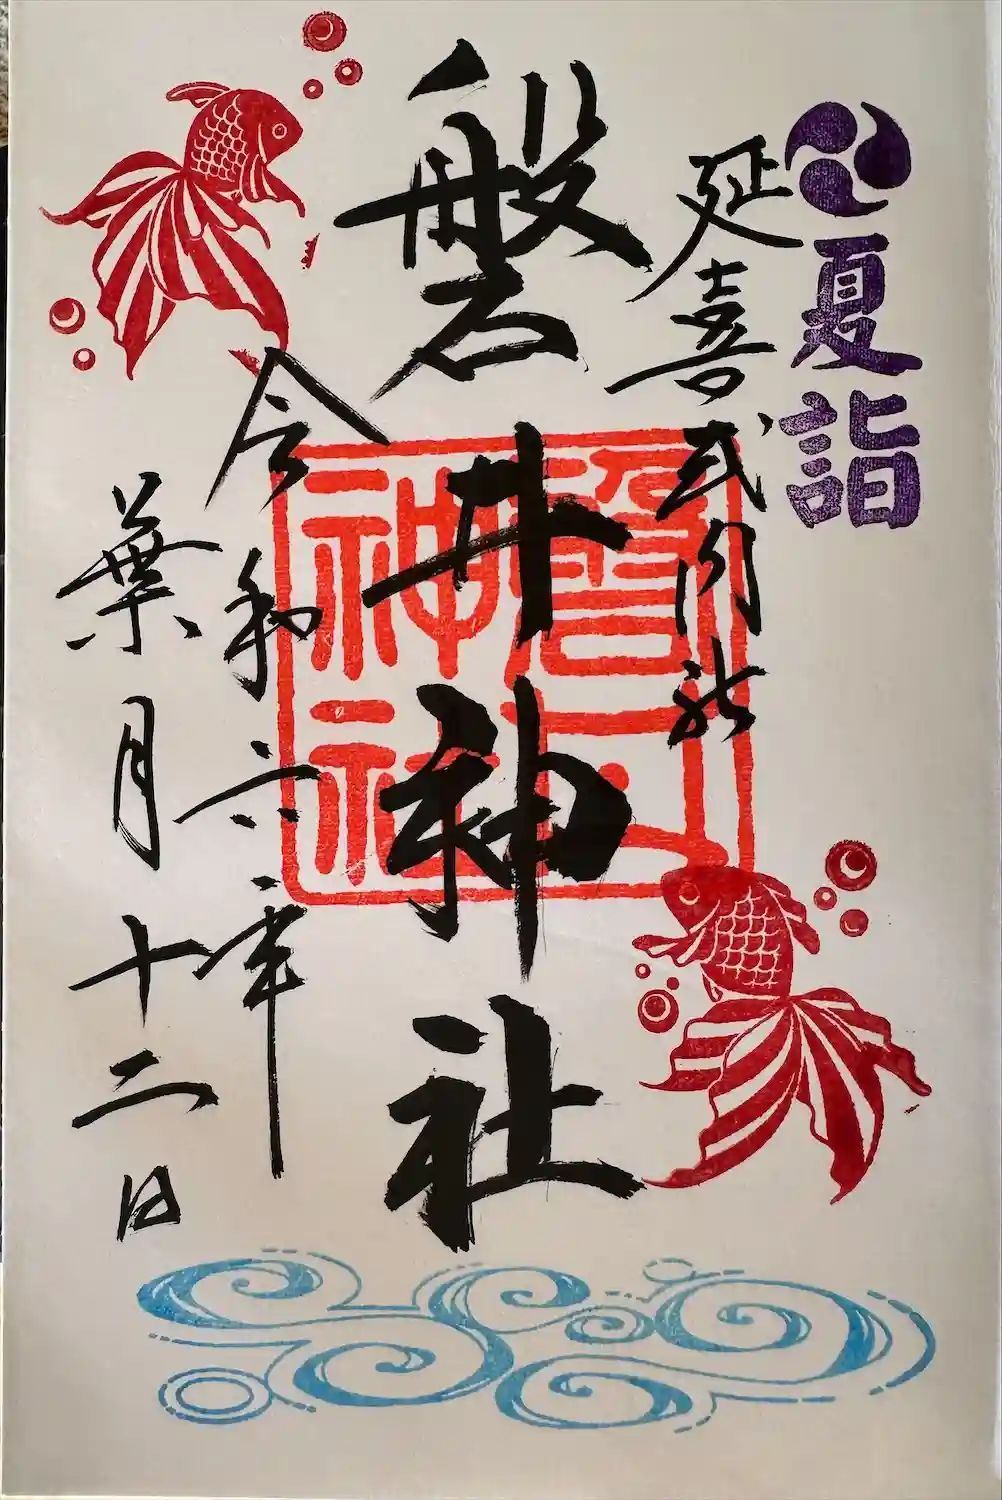 夏詣
延喜式内社
磐井神社
令和六年
葉月十二日
磐井神社